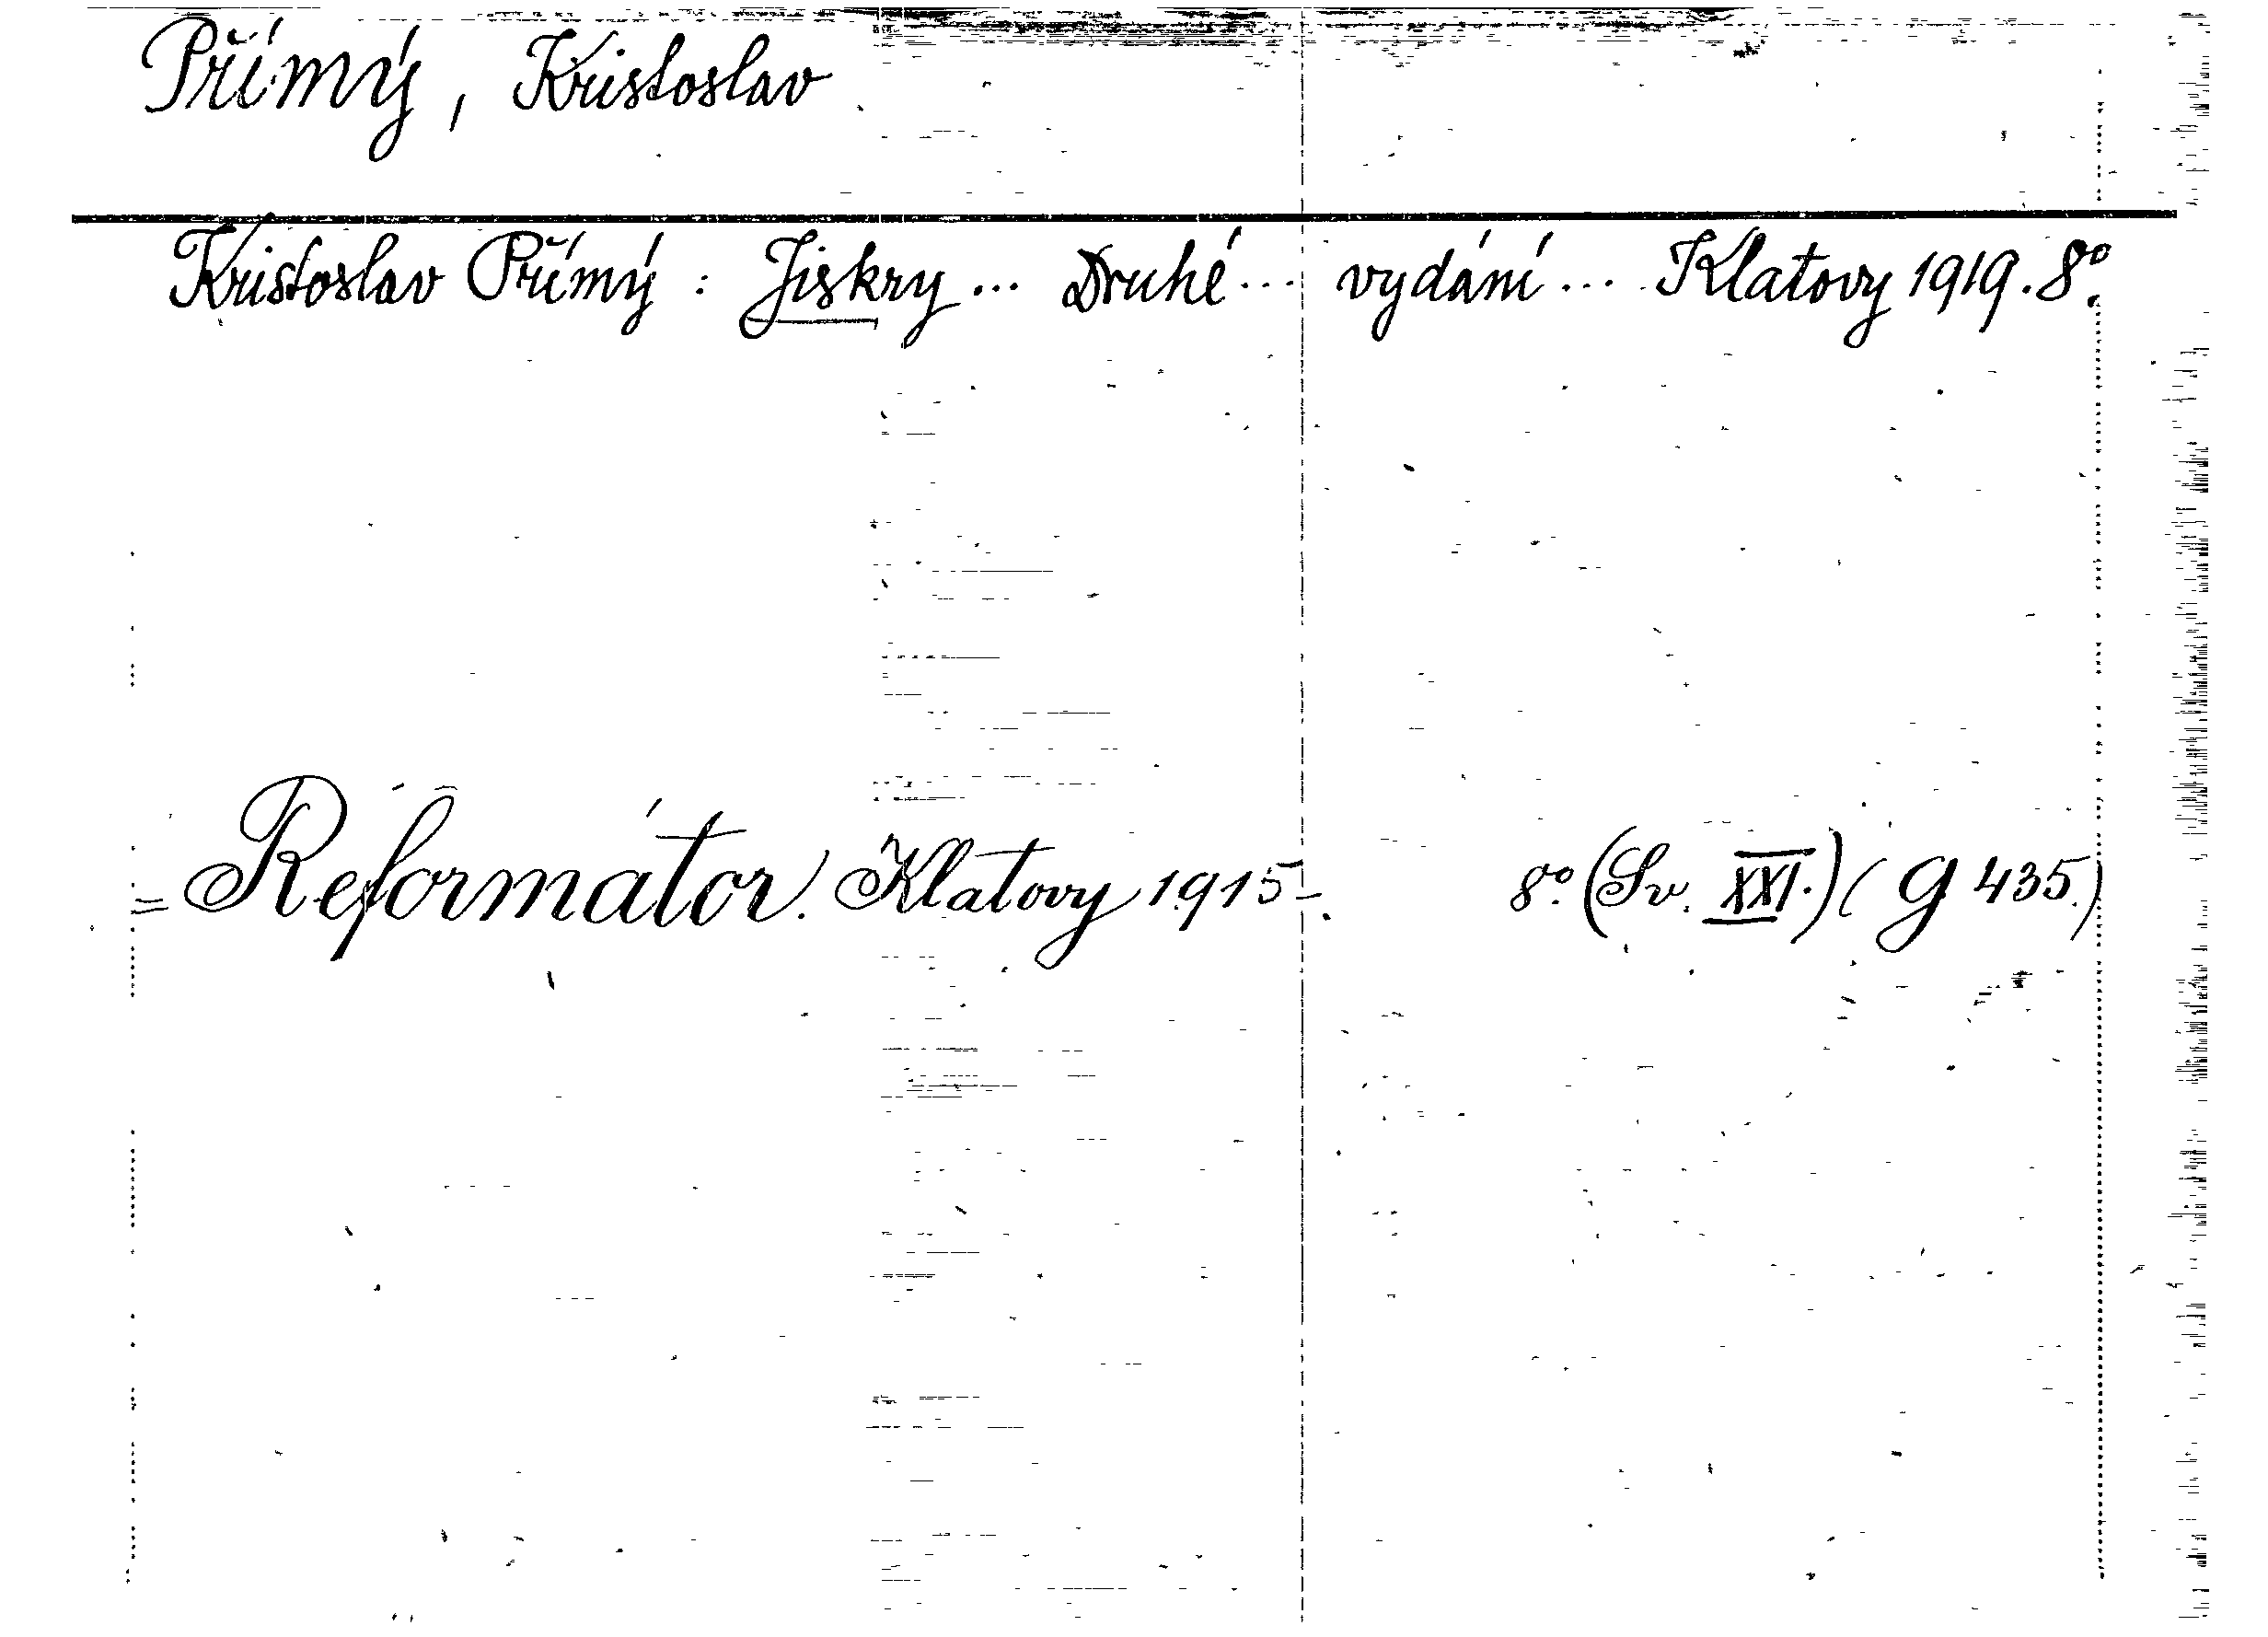 Přímý, Kristoslav
Kristoslav Přímý : Jiskry ... Druhé ... vydání ... Klatovy 1919. 8°.
= Reformátor. Klatovy 1915-. 8°. (Sv. XXI.) ( g 435.)